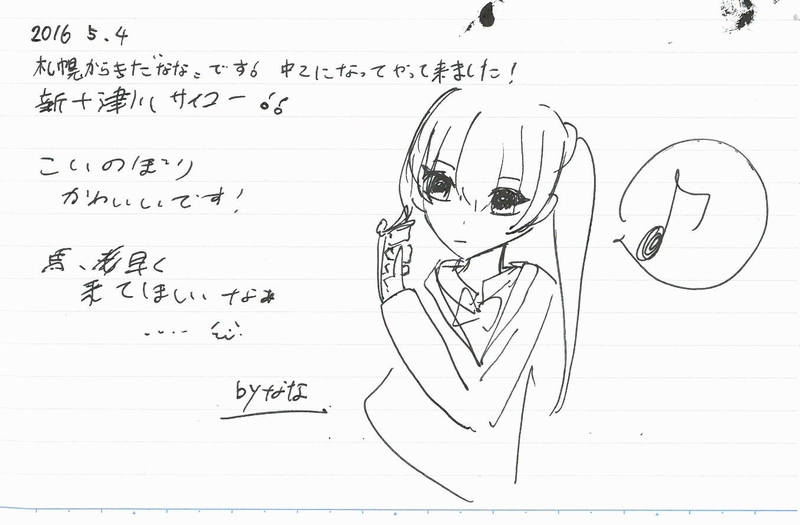 2016 5.4
札幌からきたななこです。 中2になってやって来ました!
新十津川 サイコー
こいのぼり
かわいいです!
馬、 早く
来てほしいなぁ
....
byなな